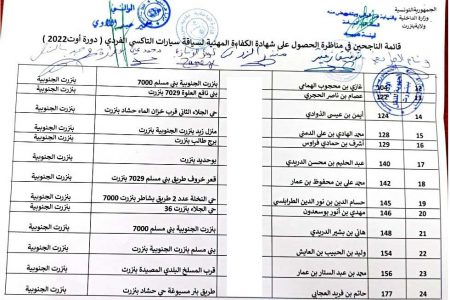 الجمهورية التونسية
وزارة الداخلية
ولاية بنزرت
الوالي
قائمة الناجحين في مناظرة الحصول على شهادة الكفاءة المهنية لسياقة سيارات التاكسي الفردي ( دورة أوت2022 )
12 104 غازي بن محجوب الهمامي بنزرت الجنوبية بني مسلم 7000 بنزرت الجنوبية
122 عصام بن ناصر الحجري بني نافع العلوة 7029 بنزرت بنزرت الجنوبية
14 124 أيمن بن عيسى الذوادي حي الجلاء الثاني قرب خزان الماء حشاد بنزرت بنزرت الجنوبية
15 128 محمد الهادي بن علي الدمني منزل زيد بنزرت الجنوبية بنزرت الجنوبية
16 129 أشرف بن حمادي فراوس برج طالب بنزرت بنزرت الجنوبية
17 140 عبد الحليم بن محسن الدريدي بوحديد بنزرت بنزرت الجنوبية
18 142 محمد علي بن محفوظ بن عمار قعر خروف طريق بني مسلم 7029 بنزرت بنزرت الجنوبية
19 145 حسام الدين بن نور الدين الطرابلسي حي النخلة عدد 2 طريق بشاطر بنزرت 7000 بنزرت الجنوبية
20 146 مهدي بن أنور بوسعدون حي الجلاء 36 بنزرت بنزرت الجنوبية
21 148 هاني بن بشير الدريدي بنزرت الجنوبية بني مسلم 7000 بنزرت الجنوبية
22 154 وليد بن الحبيب بن العايش بني مسلم بنزرت الجنوبية بنزرت بنزرت الجنوبية
23 156 محمد بن عبد الستار بن عمار قرب المسلخ البلدي المصيدة بنزرت بنزرت الجنوبية
24 177 حاتم بن فريد العجابي طريق بئر مسيوغة حي حشاد بنزرت بنزرت الجنوبية